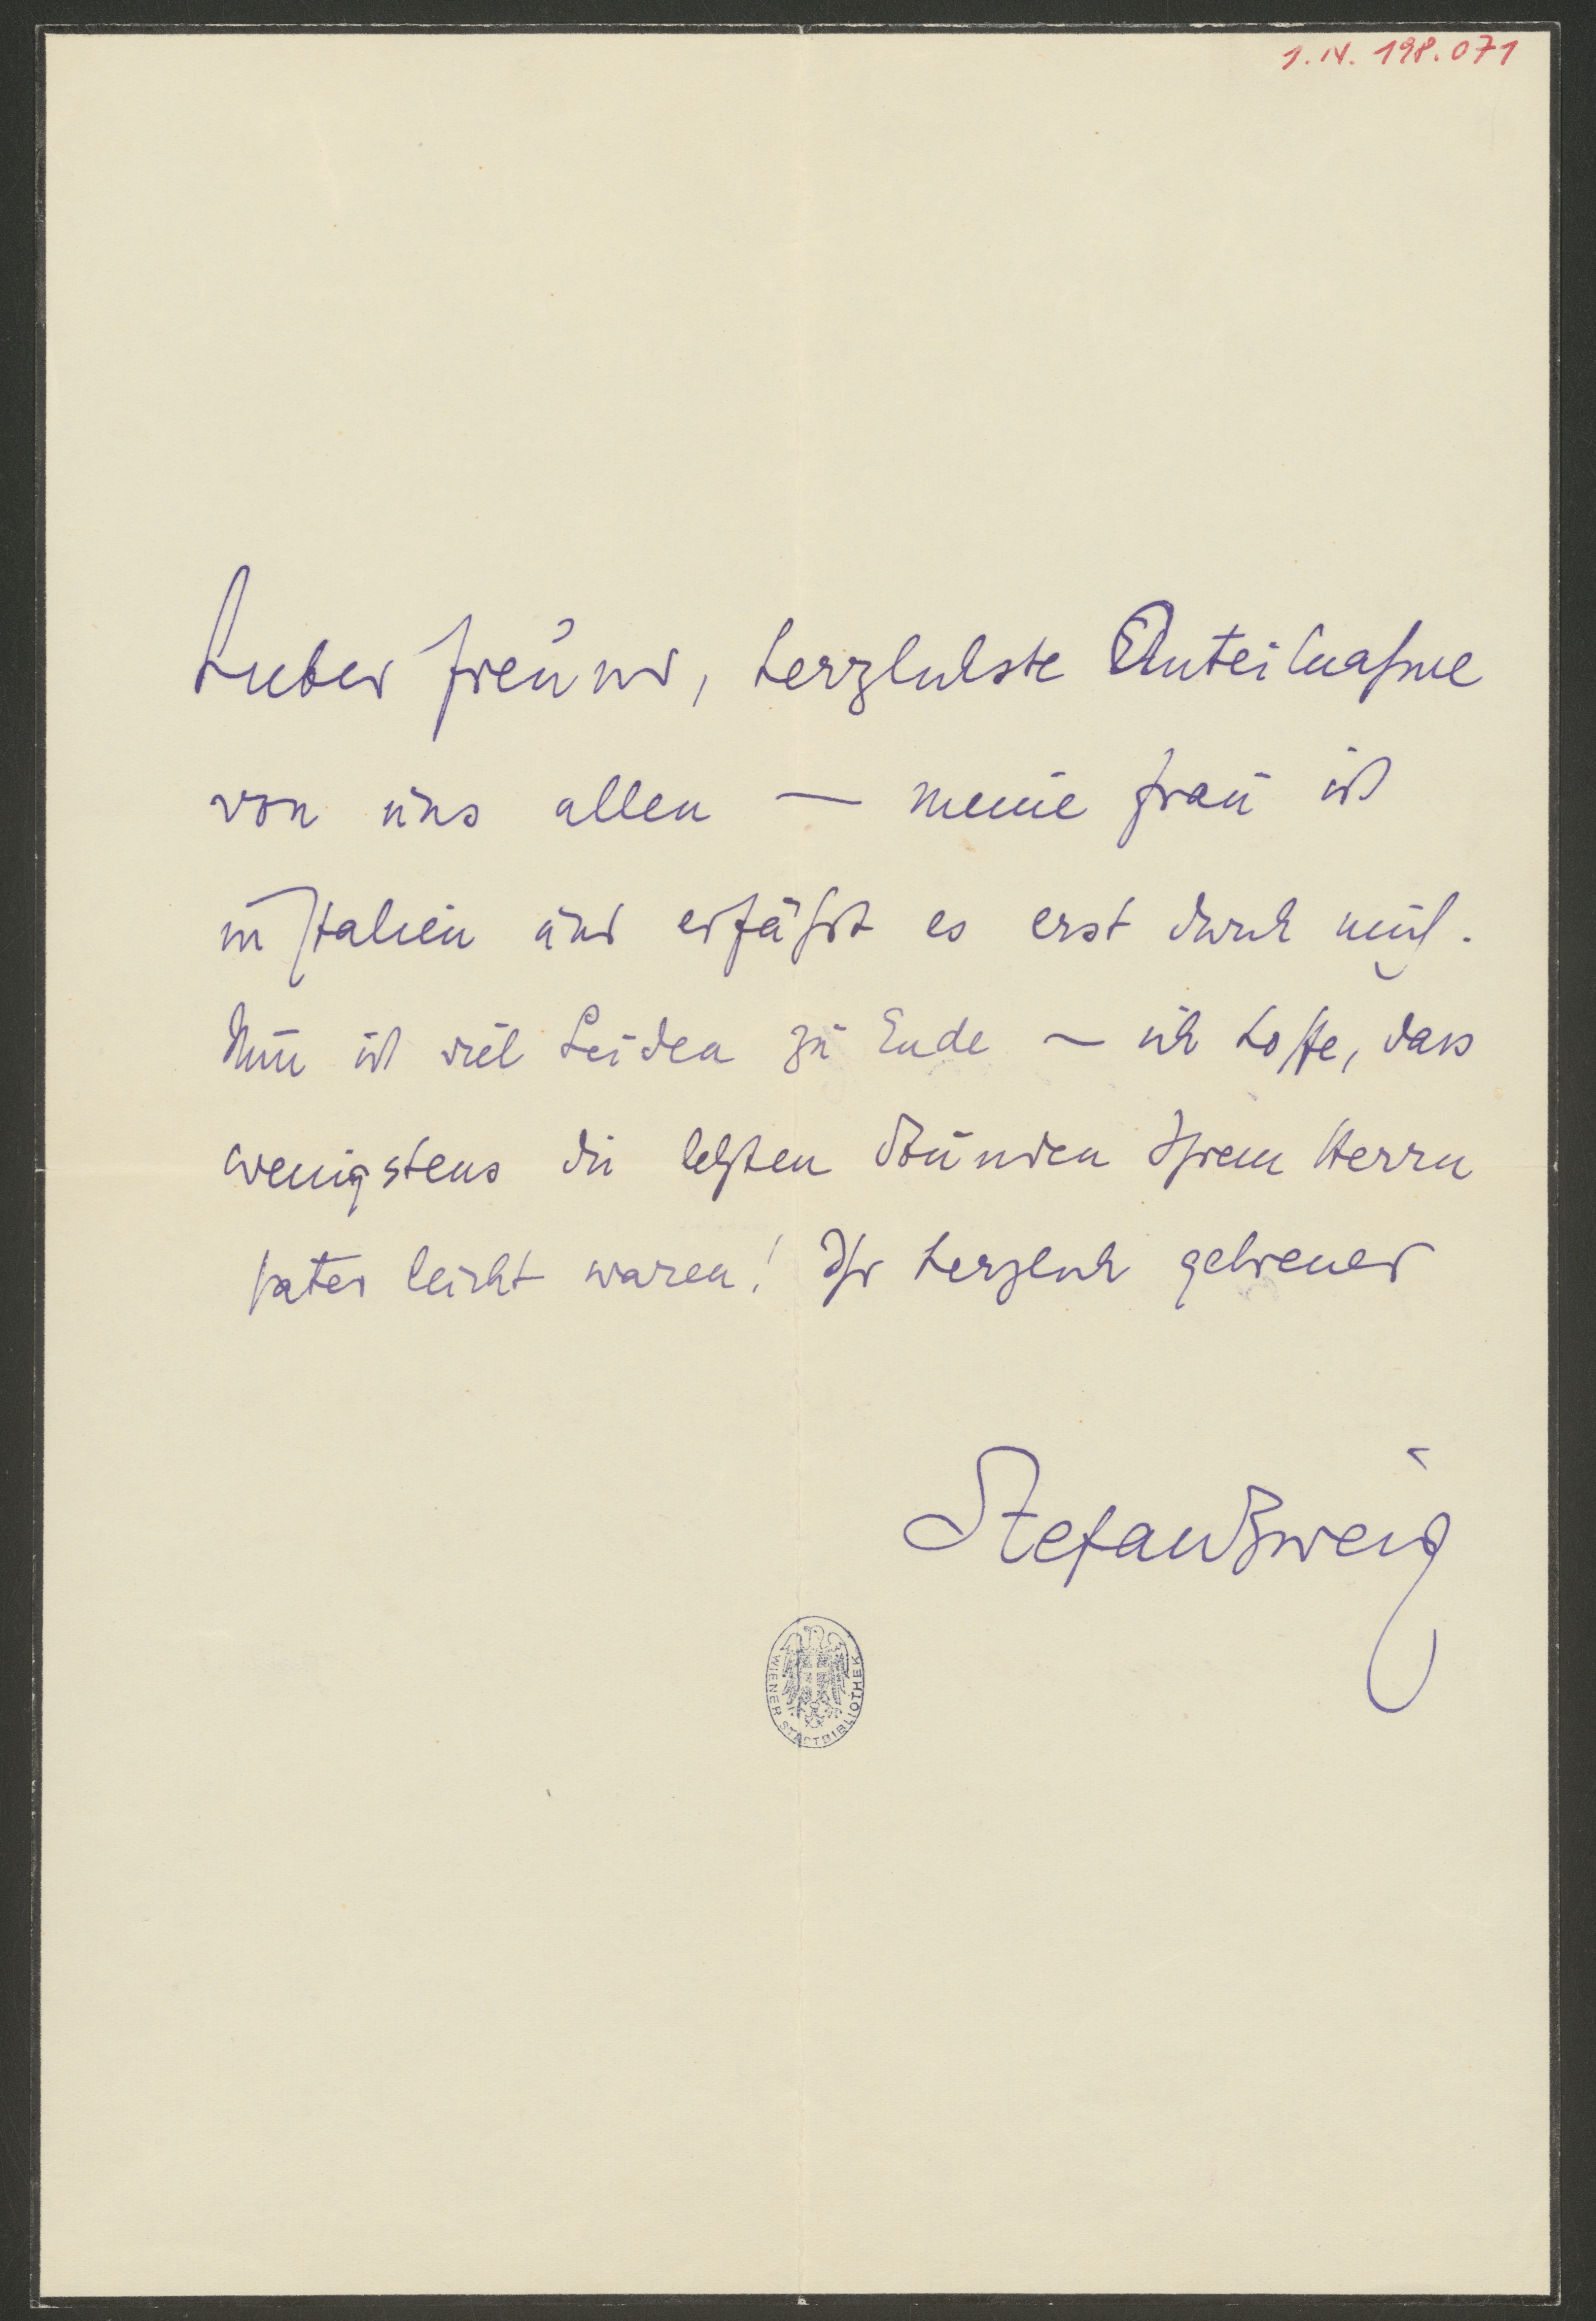 1.N. 198.071
Lieber Freund, herzlichste Anteilnahme
von uns allen — meine Frau ist
in Italien und erfährt es erst durch mich.
Nun ist viel Leiden zu Ende – ich hoffe, dass
wenigstens die letzten Stunden Ihrem Herrn
Vater leicht waren! Ihr herzlich getreuer
Stefan Zweig
WIENER STADTBIBLIOTHEK